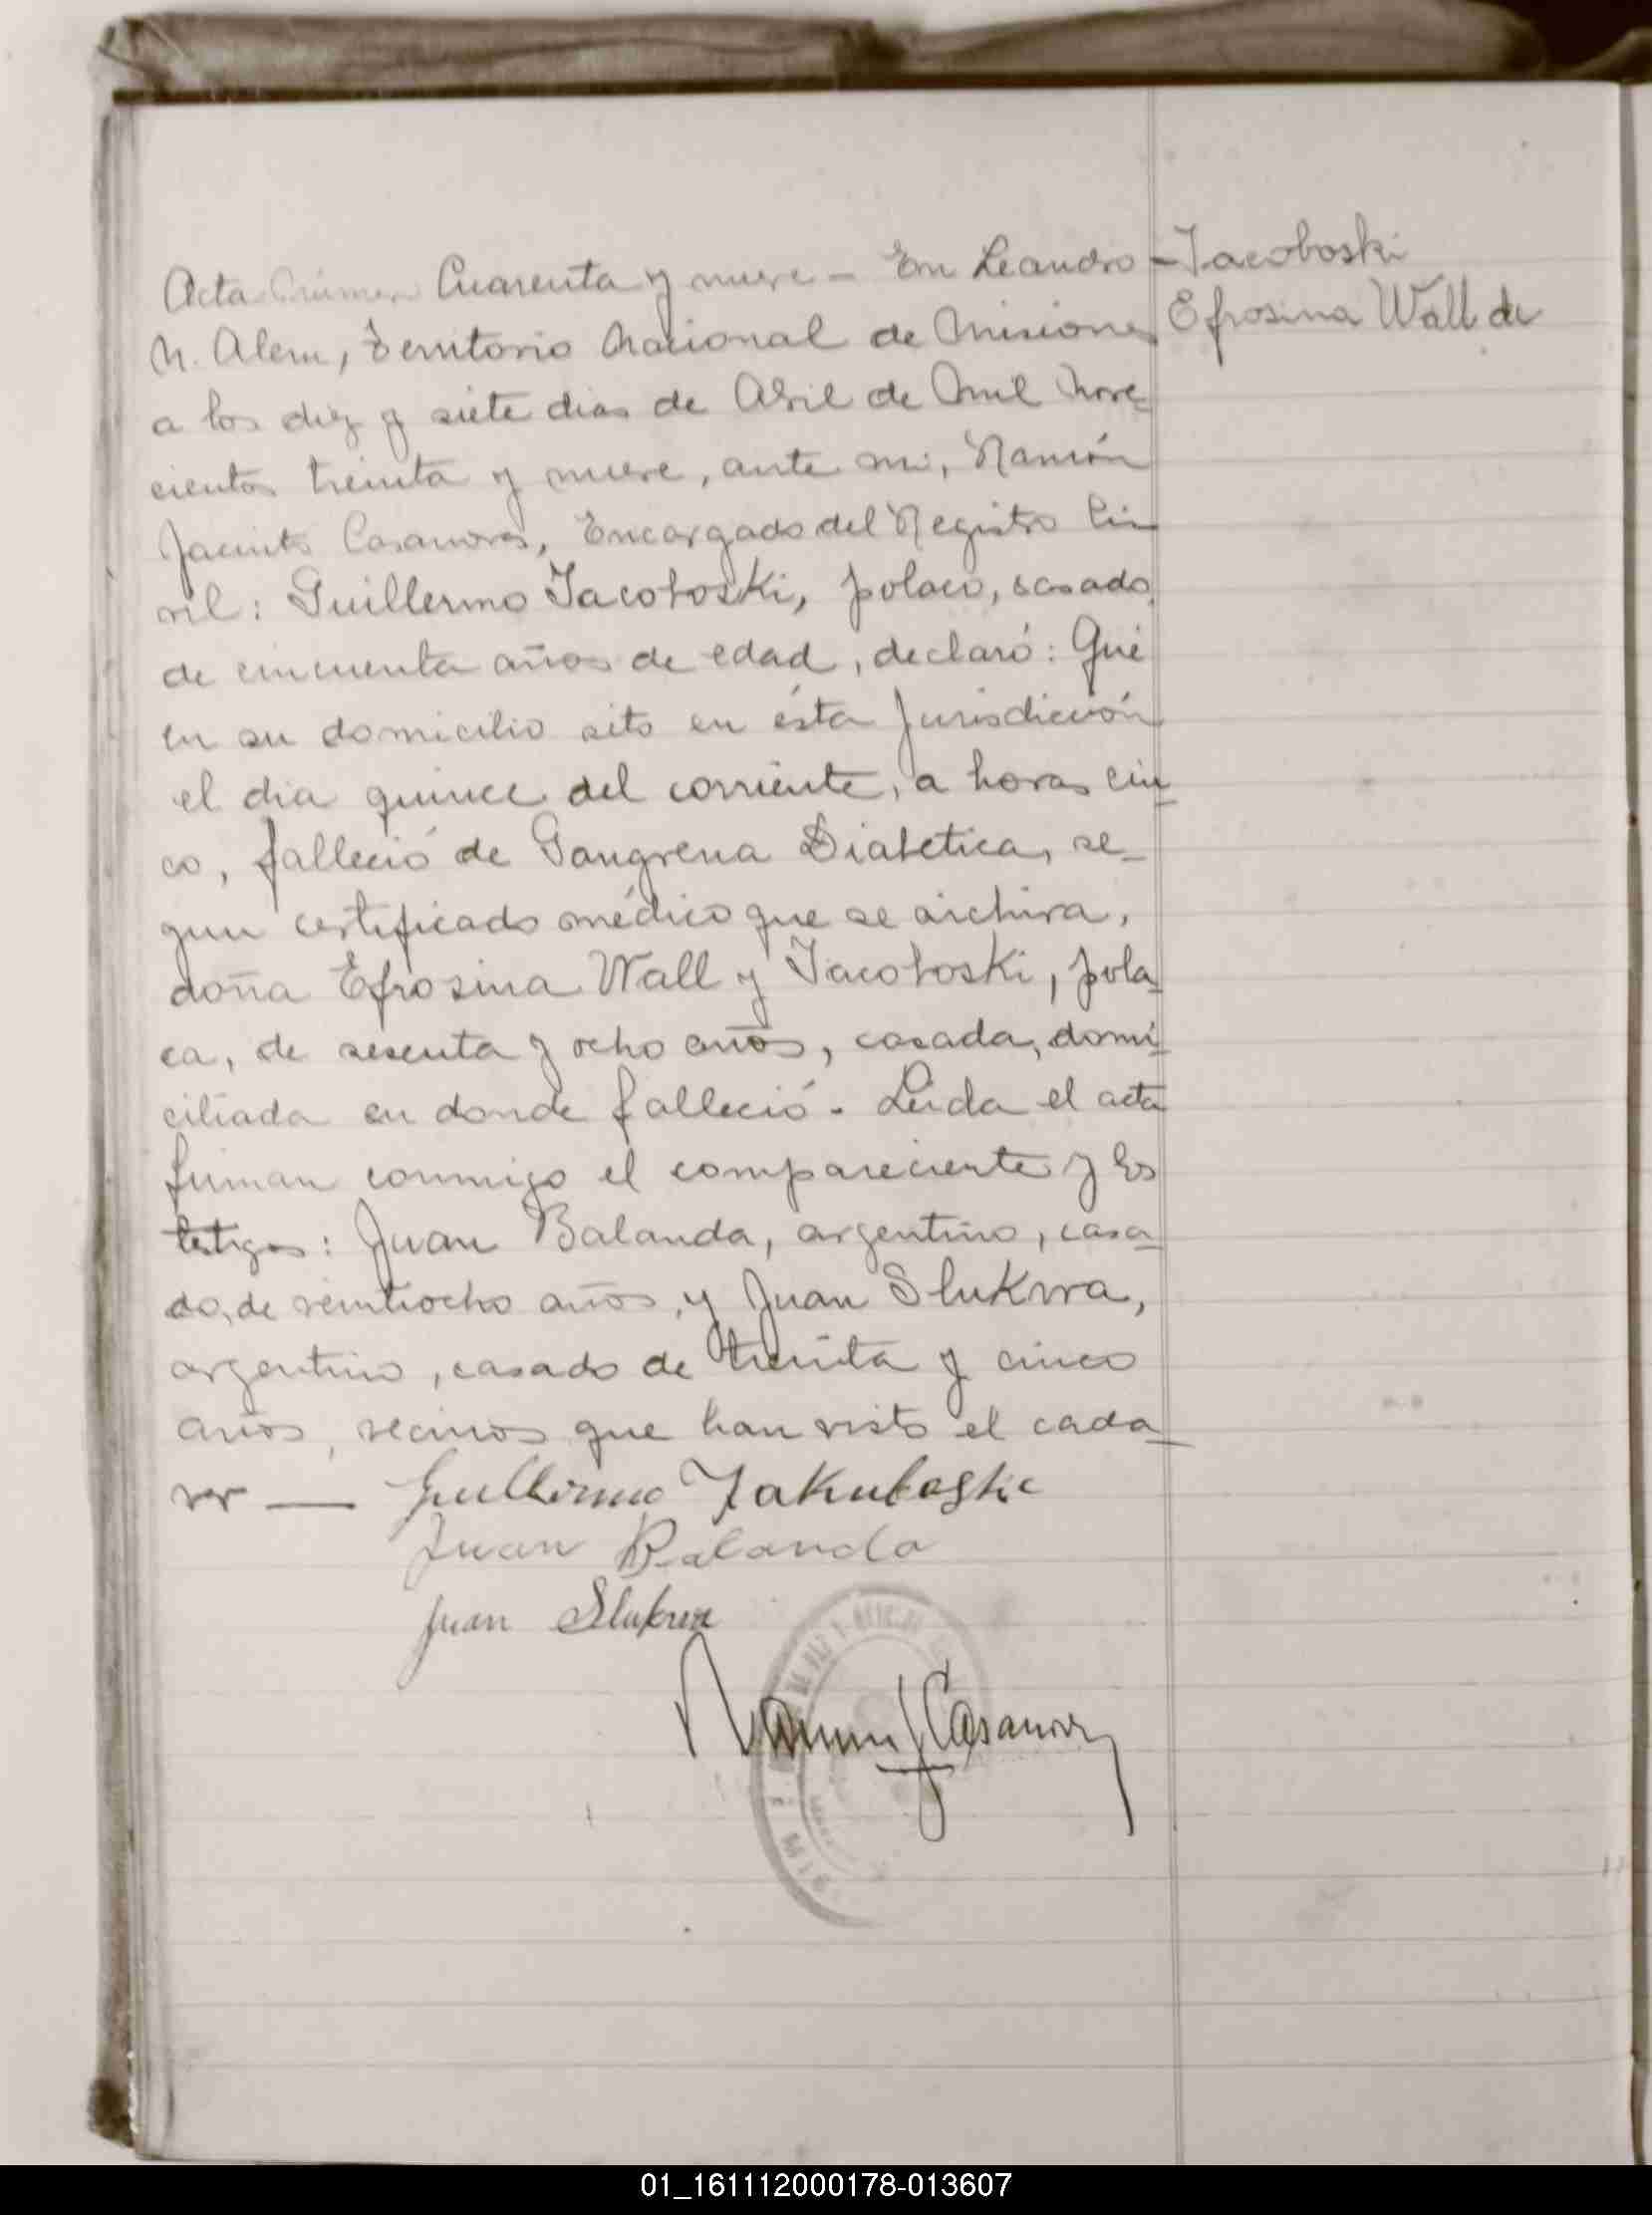 Acta Número Cuarenta y nueve - En Leandro
N. Alem, Territorio Nacional de Misiones
a los diez y siete dias de Abril de Mil Nove-
cientos treinta y nueve, ante mi, Ramón
Jacinto Casanova, Encargado del Registro Ci-
vil: Guillermo Jacoboski, polaco, casado,
de cincuenta años de edad, declaró: Qué
en su domicilio sito en ésta Jurisdicción
el dia quince del corriente, a horas cin-
co, falleció de Gangrena Diabetica, se-
gun certificado médico que se archiva,
doña Efrosina Wall y Jacoboski, pola-
ca, de sesenta y ocho años, casada, domi-
ciliada en donde falleció. Leida el acta
firman conmigo el compareciente y los
testigos: Juan Balanda, argentino, casa-
do, de veintiocho años, y Juan Slukwa,
argentino, casado de treinta y cinco
años, vecinos que han visto el cada-
ver —
Guillermo Jakuboski
Juan Balanda
Juan Slukwa
Ramon J Casanova
- Jacoboski
Efrosina Wall de
01_161112000178-013607